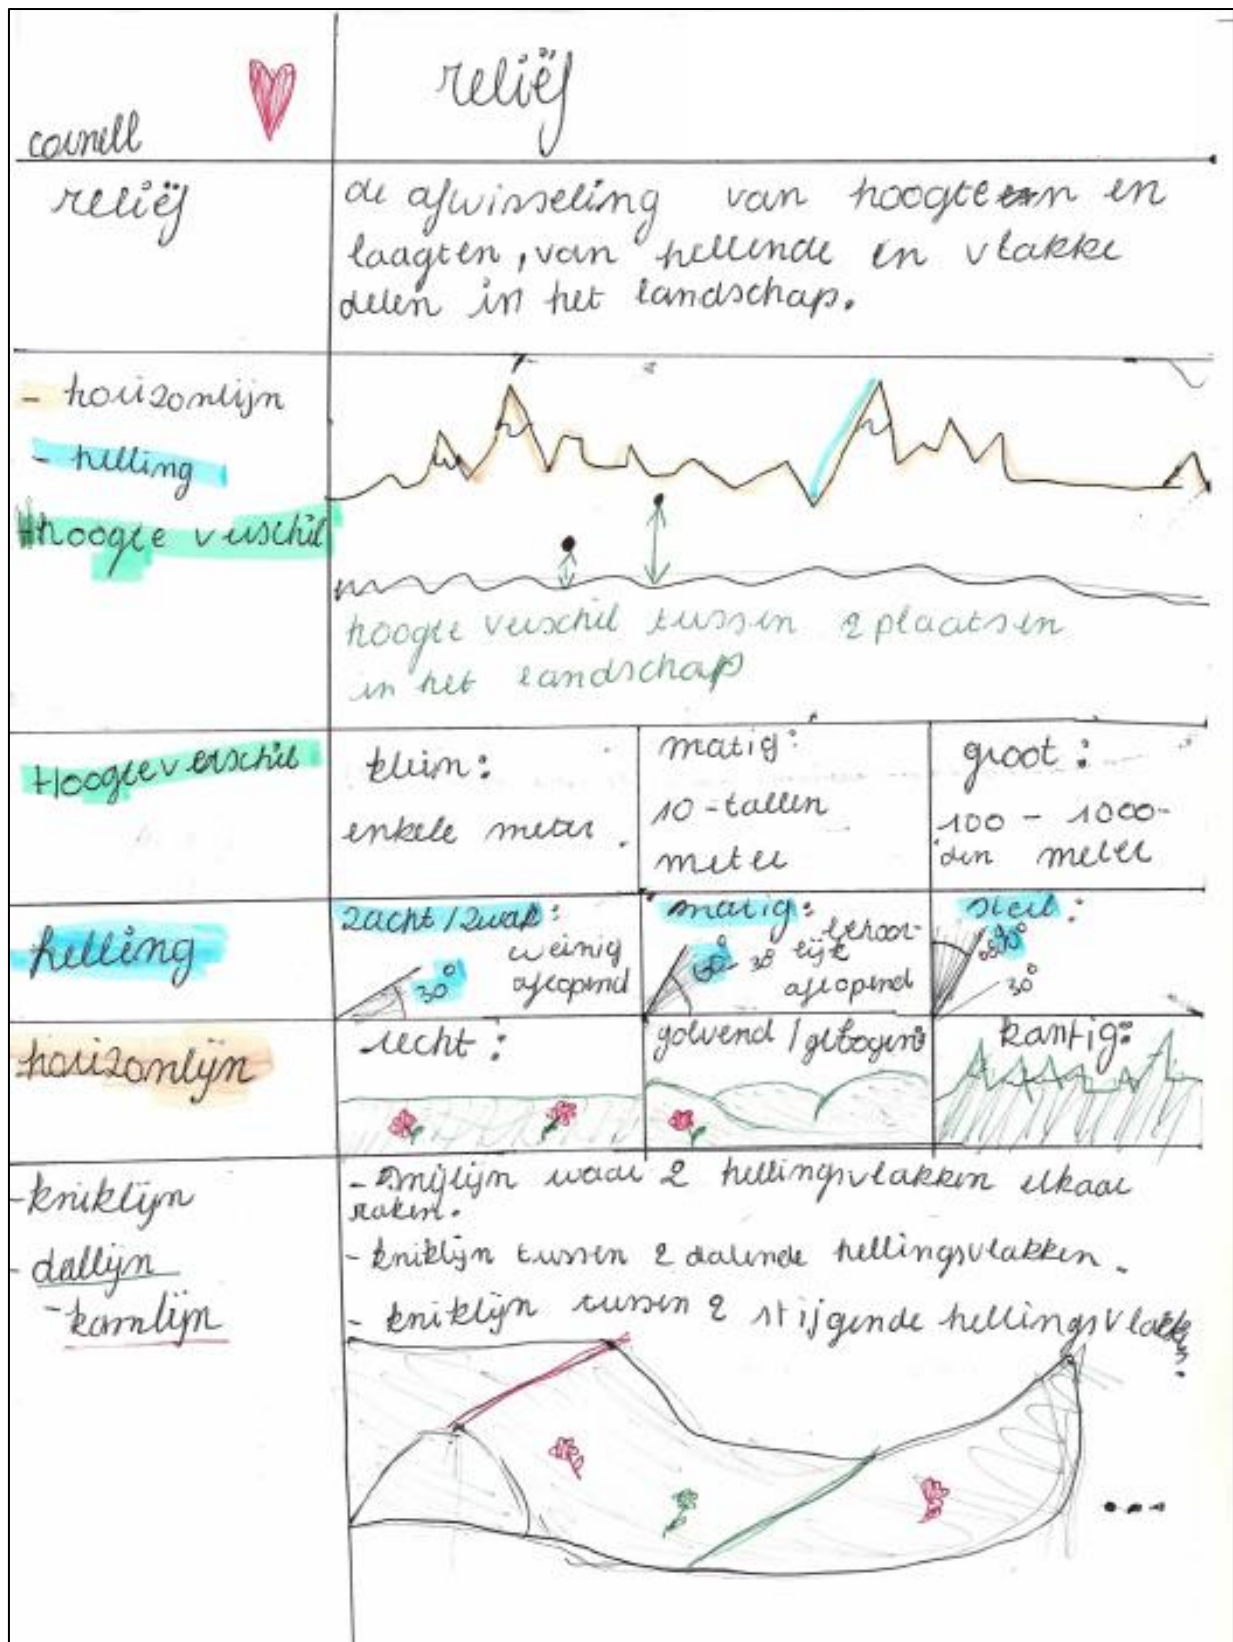 cornell
reliëf
reliëf
de afwisseling van hoogten en
laagten, van hellende en vlakke
delen in het landschap.
- horizonlijn
- helling
hoogte verschil
hoogte verschil tussen 2 plaatsen
in het landschap
Hoogteverschil
klein:
enkele meter.
matig:
10-tallen
meter
groot:
100 - 1000-
den meter
helling
zacht/zwak:
weinig
aflopend
30°
matig:
behoor-
lijk
aflopend
30°
steil:
90°
30°
horizonlijn
recht:
golvend / gebogen:
kantig:
- kniklijn
- dallijn
- kamlijn
- snijlijn waar 2 hellingsvlakken elkaar
raken.
- kniklijn tussen 2 dalende hellingsvlakken.
- kniklijn tussen 2 stijgende hellingsvlakken.